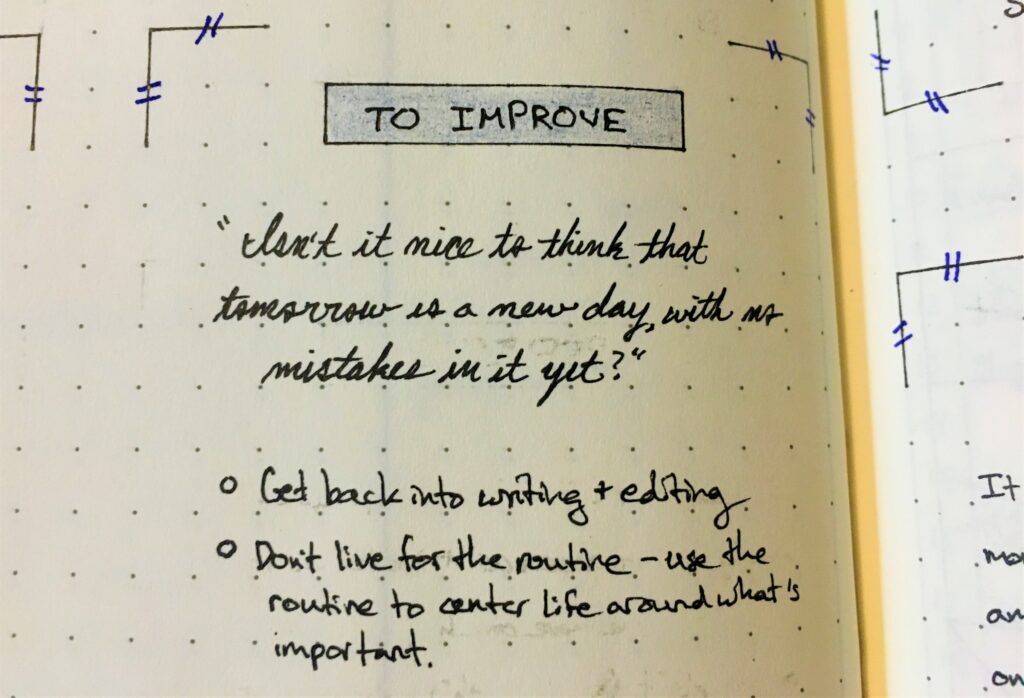 TO IMPROVE
"Isn't it nice to think that
tomorrow is a new day, with no
mistakes in it yet?"
o Get back into writing + editing
o Don't live for the routine - use the
routine to center life around what's
important.
It